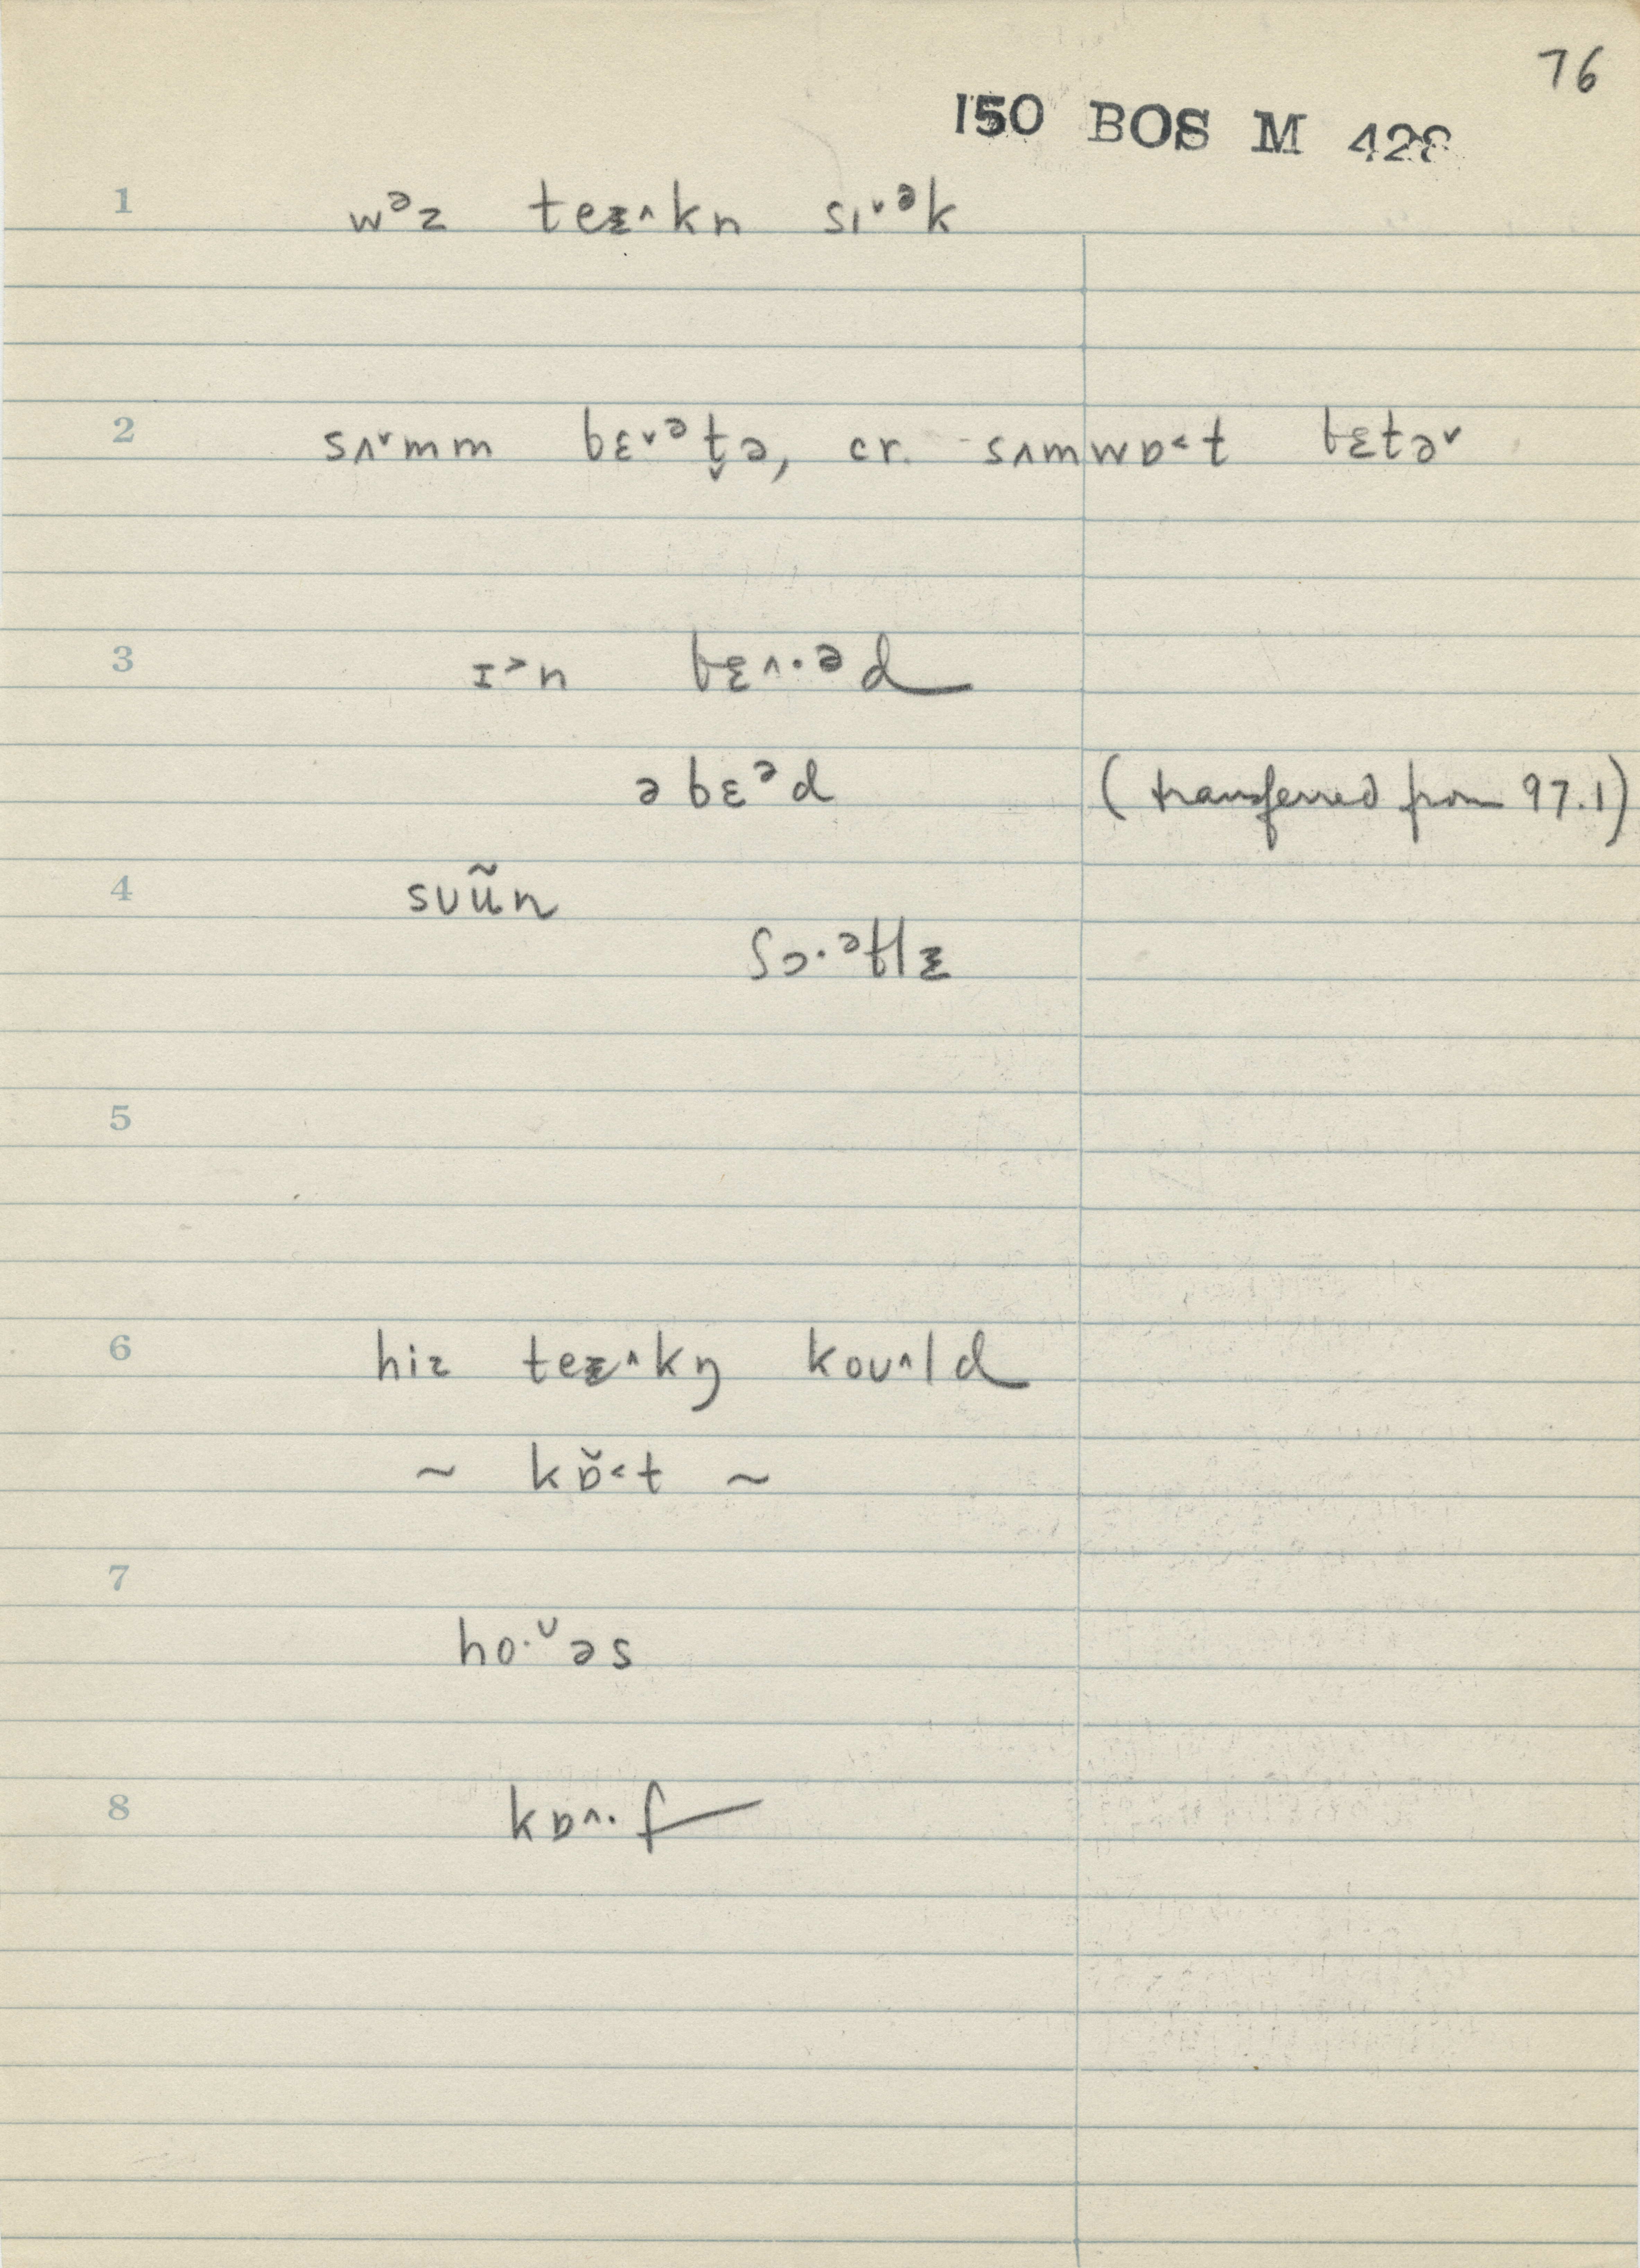 76
150 BOS M 428
1 wᵊz teɪ^kn sɪˇᵊk
2 sʌˇmm bɛˇᵊt̬ə, cr. sʌmwɒ˂t bɛtəˇ
3 ɪ˃n bɛ^·ᵊd
əbɛᵊd (transferred from 97.1)
4 sʊũn
ʃɔ·ᵊtlɪ
5
6 hiz teɪ^kŋ koʊ^ld
~ kɒ̆˂t ~
7
ho·ᶷəs
8 kɒ^·f